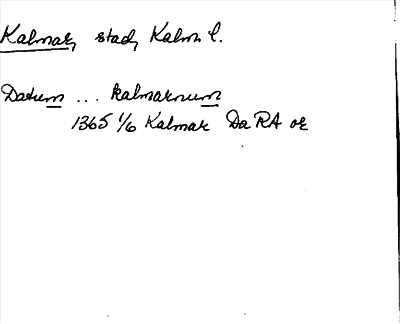 Kalmar, stad, Kalm l.
Datum ... kalmarnum
1365 1/6 Kalmar Da RA or